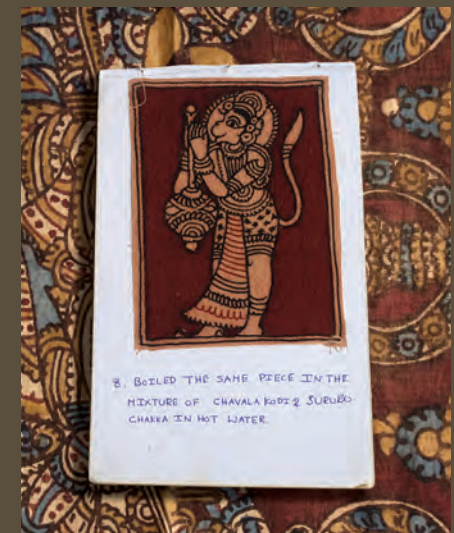 8. BOILED THE SAME PIECE IN THE
MIXTURE OF CHAVALA KODI & SURUBU
CHAKKA IN HOT WATER